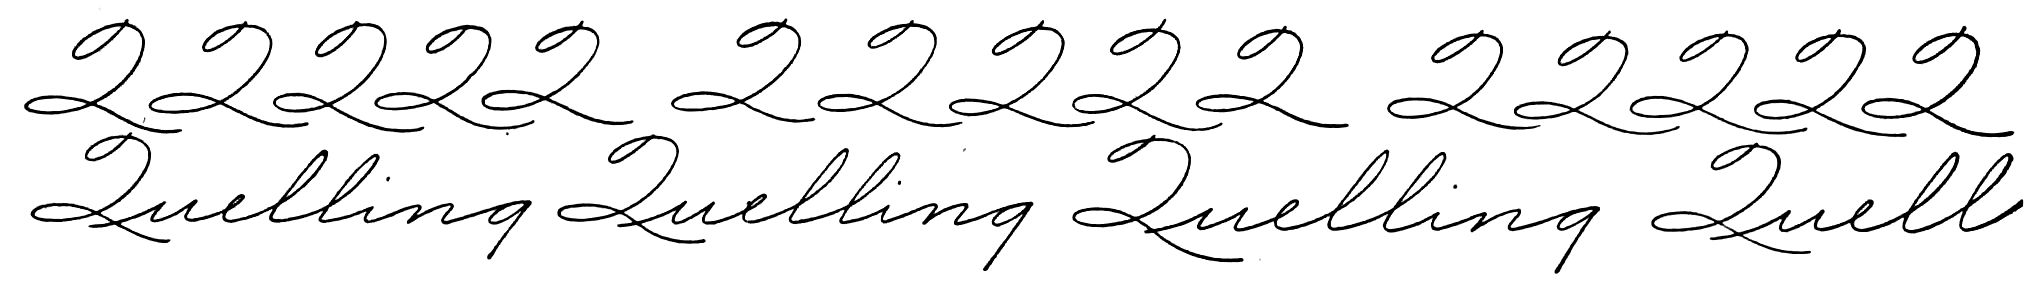 QQQQQ QQQQQ QQQQQ
Quelling Quelling Quelling Quell